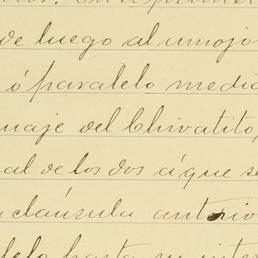 de luego al amojo
ó paralelo media
naje del Chivatito,
al de los dos á que se
cláusula anterio
lelo hasta su inter